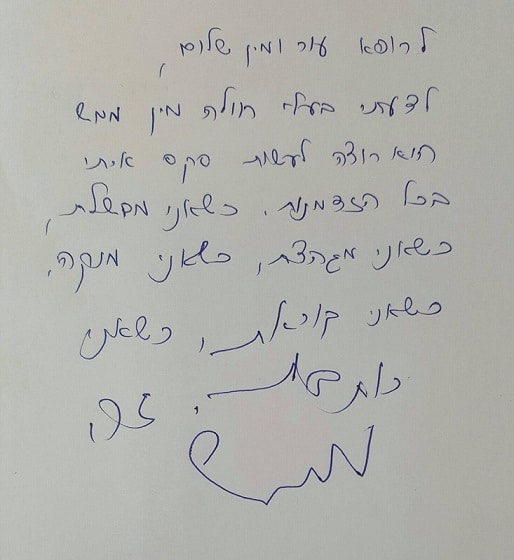 לרופא עור ומין שלום,
לדעתי בעלי חולה מין ממש
הוא רוצה לעשות סקס איתי
בכל הזדמנות. כשאני מבשלת,
כשאני מגהצת, כשאני מנקה,
כשאני קוראת, כשאני
כותבת, זה,
ממש